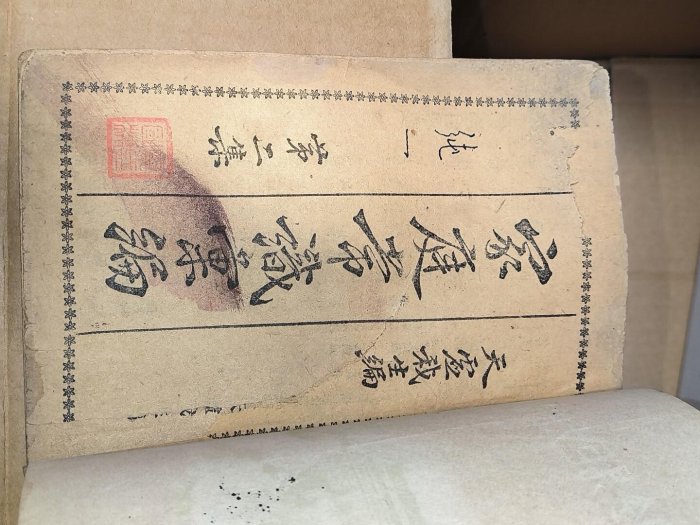 天虛我生編
家庭常識彙編
純一
第三集